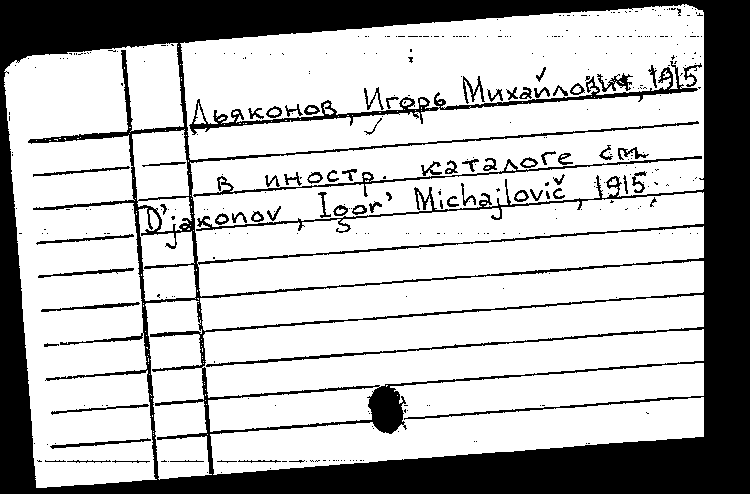 Дьяконов, Игорь Михайлович, 1915
в иностр. каталоге см.
D'jakonov, Igor' Michajlovič, 1915.